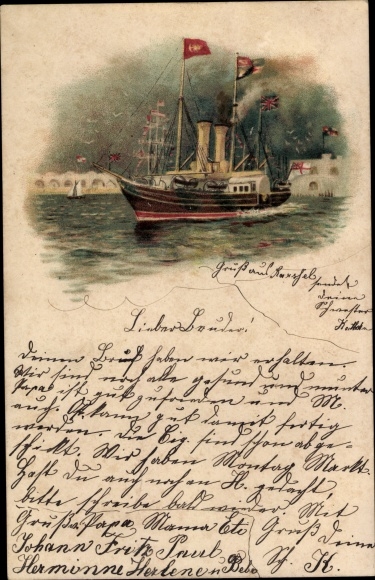 Gruß aus
sendet
Deine
Schwester
Lieber Bruder!
Deinen Brief haben wir erhalten.
Wir sind noch alle gesund und munter
Papa ist gut zufrieden und M.
auch. kann gut damit fertig
werden. Die Cig. sind schon abge-
schickt. Wir haben Montag Markt.
Hast Du auch noch an H. gedacht,
bitte schreibe bald wieder. Mit
Gruß Papa Mama Etc Gruß Deine
Johann Fritz Paul Schw. K.
Hermine Herlene u Bebe